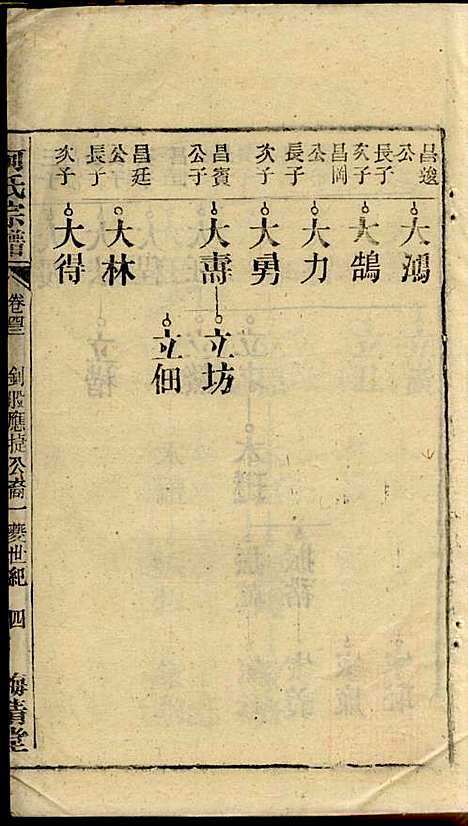 昌逡公長子
大鴻
次子
大鵠
昌岡公長子
大力
次子
大勇
昌賓公子
大壽
立坊
立佃
昌廷公長子
大林
次子
大得
氏宗譜
卷
釗 應捷公裔一
夔世紀
四
清堂